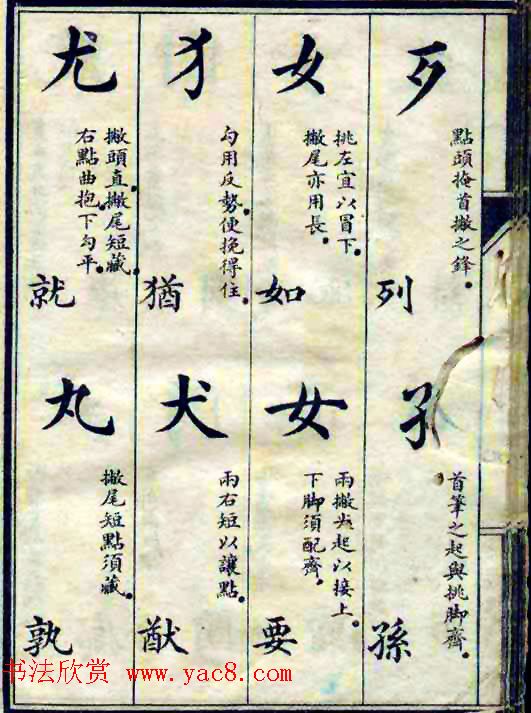 歹
點頭掩首撇之鋒。
列
孑
首筆之起與挑脚齊。
孫
女
挑左宜以冒下。
撇尾亦用長。
如
女
兩撇尖起以接上。
下脚須配齊。
要
犭
勾用反勢便挽得住。
猶
犬
兩右短以讓點。
猷
尤
撇頭直。撇尾短藏。
右點曲抱。下勾平。
就
丸
撇尾短點須藏。
孰
书法欣赏 www.yac8.com